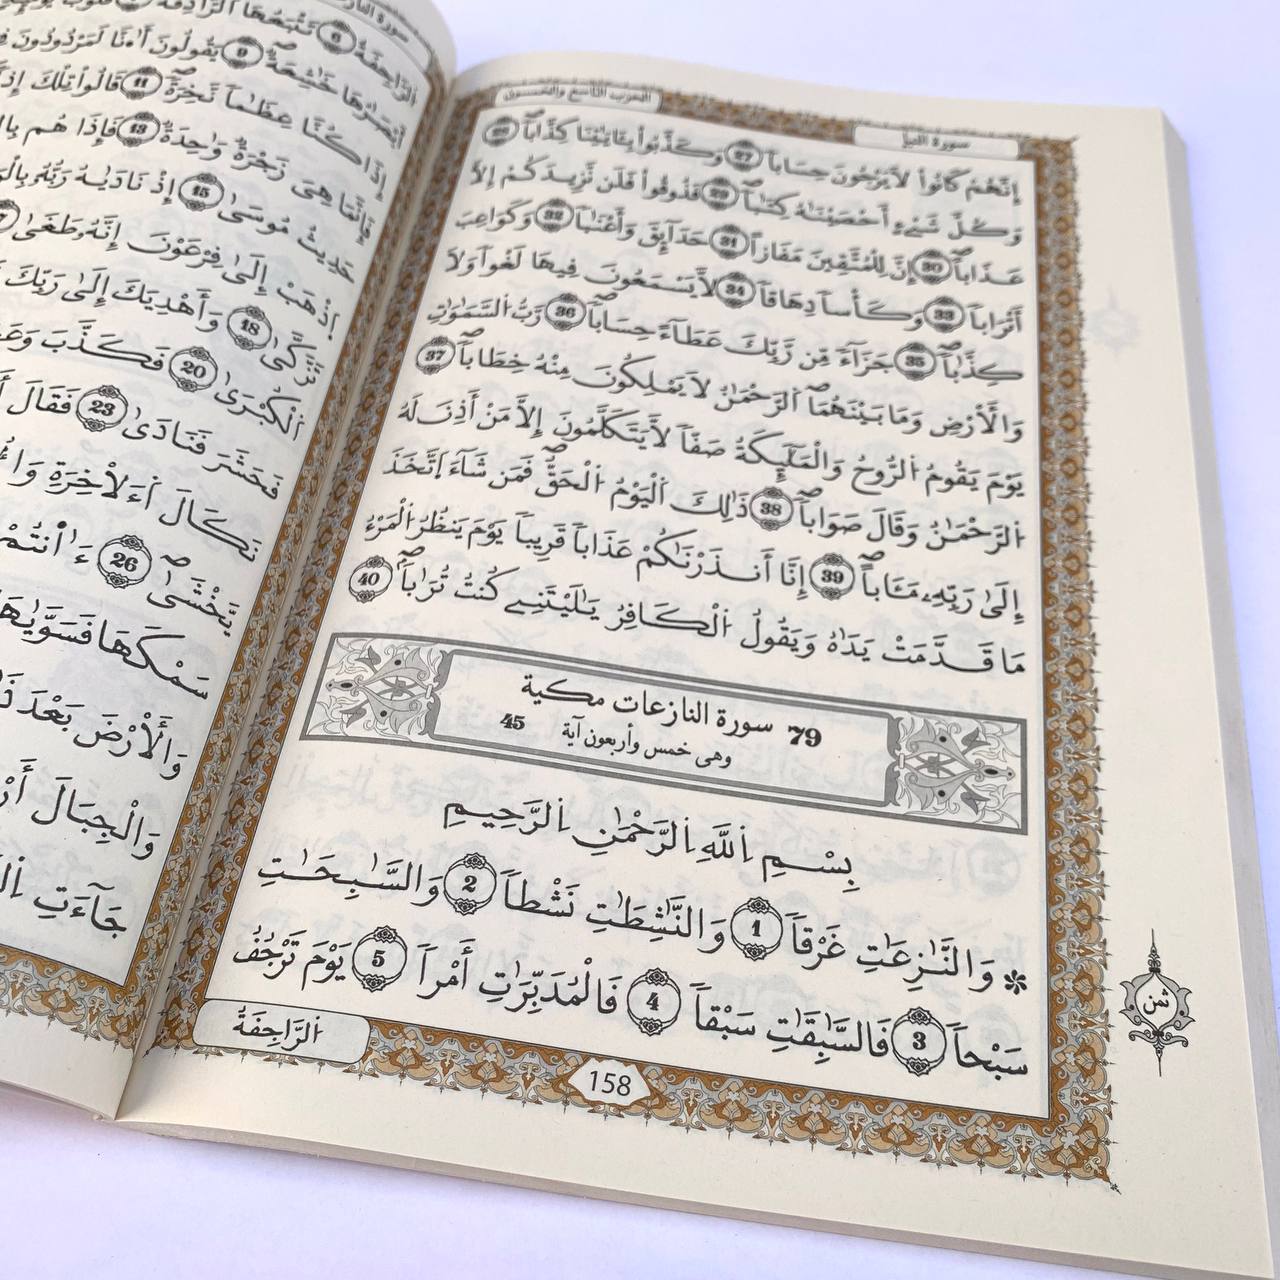 سورة النبإ
الحزب التاسع والخمسون
إِنَّهُمْ كَانُواْ لَا يَرْجُونَ حِسَاباٗ 27 وَكَذَّبُواْ بِـَٔايَٰتِنَا كِذَّاباٗ 28
وَكُلَّ شَيْءٍ اَحْصَيْنَٰهُ كِتَٰباٗ 29 فَذُوقُواْ فَلَن نَّزِيدَكُمْ إِلَّا
عَذَاباً 30 إِنَّ لِلْمُتَّقِينَ مَفَازاً 31 حَدَآئِقَ وَأَعْنَٰباٗ 32 وَكَوَاعِبَ
أَتْرَاباٗ 33 وَكَأْساٗ دِهَاقاٗ 34 لَّا يَسْمَعُونَ فِيهَا لَغْواٗ وَلَا
كِذَّٰباٗ 35 جَزَآءٗ مِّن رَّبِّكَ عَطَآءً حِسَاباٗ 36 رَّبُّ السَّمَٰوَٰتِ
وَالْأَرْضِ وَمَا بَيْنَهُمَا اَلرَّحْمَٰنُ لَا يَمْلِكُونَ مِنْهُ خِطَاباٗ 37
يَوْمَ يَقُومُ اُلرُّوحُ وَالْمَلَٰٓئِكَةُ صَفّاٗ لَّا يَتَكَلَّمُونَ إِلَّا مَنْ أَذِنَ لَهُ
اُلرَّحْمَٰنُ وَقَالَ صَوَاباٗ 38 ذَٰلِكَ اَلْيَوْمُ اُلْحَقُّ فَمَن شَآءَ اَتَّخَذَ
إِلَىٰ رَبِّهِۦ مَـَٔاباً 39 إِنَّا أَنذَرْنَٰكُمْ عَذَاباٗ قَرِيباٗ يَوْمَ يَنظُرُ اُلْمَرْءُ
مَا قَدَّمَتْ يَدَاهُ وَيَقُولُ اُلْكَافِرُ يَٰلَيْتَنِے كُنتُ تُرَٰباً 40
79 سورة النازعات مكية
وهى خمس وأربعون آية 45
بِسْمِ اِللَّهِ اِلرَّحْمَٰنِ اِلرَّحِيمِ
* وَالنَّٰزِعَٰتِ غَرْقاٗ 1 وَالنَّٰشِطَٰتِ نَشْطاٗ 2 وَالسَّٰبِحَٰتِ
سَبْحاٗ 3 فَالسَّٰبِقَٰتِ سَبْقاٗ 4 فَالْمُدَبِّرَٰتِ أَمْراٗ 5 يَوْمَ تَرْجُفُ
اُلرَّاجِفَةُ
158
ثمن
اُلرَّاجِفَةُ 6 تَتْبَعُهَا اَلرَّادِفَةُ
أَبْصَٰرُهَا خَٰشِعَةٌ 9 يَقُولُونَ أَٰ۟نَّا لَمَرْدُودُونَ
إِذَا كُنَّا عِظَٰماٗ نَّخِرَةٗ 11 قَالُواْ تِلْكَ
فَإِنَّمَا هِيَ زَجْرَةٌ وَٰحِدَةٌ 13 فَإِذَا هُم
حَدِيثُ مُوسَىٰ 15 إِذْ نَادَىٰهُ رَبُّهُۥ
اِذْهَبْ إِلَىٰ فِرْعَوْنَ إِنَّهُۥ طَغَىٰ
تَزَّكَّىٰ 18 وَأَهْدِيَكَ إِلَىٰ رَبِّكَ
اَلْكُبْرَىٰ 20 فَكَذَّبَ
فَحَشَرَ فَنَادَىٰ 23 فَقَالَ
نَكَالَ اَلَاخِرَةِ
يَّخْشَىٰ 26 ءَآنتُمْ
سَمْكَهَا فَسَوَّىٰهَا
وَالْأَرْضَ بَعْدَ
وَالْجِبَالَ
جَآءَتِ